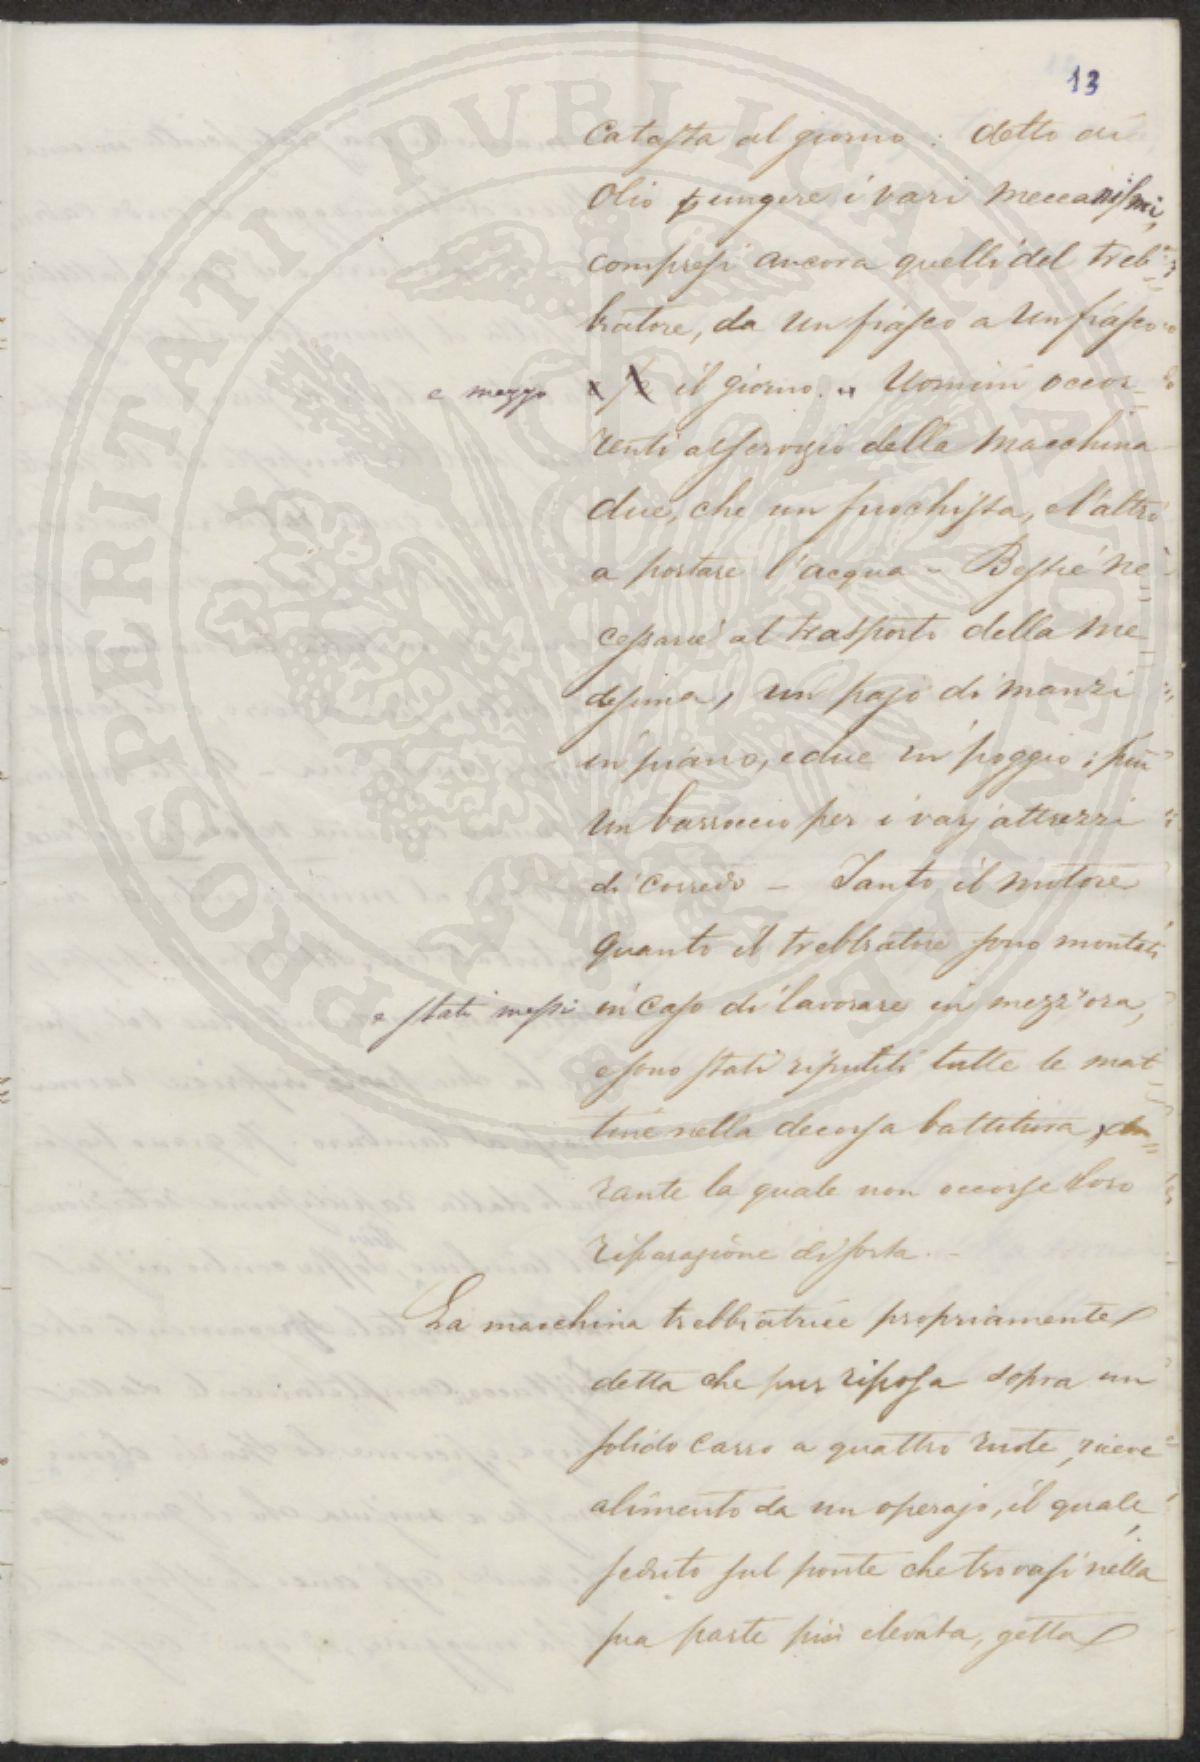 13
catasta al giorno: detto di
olio p ungere i vari meccanismi,
compresi ancora quelli del treb=
biatore, da un fiasco a un fiasco
e mezzo il giorno. „ Uomini occor=
renti al servizio della macchina
due, che un fuochista, e l'altro
a portare l'acqua – Bestie ne=
cessarie al trasporto della me=
desima, un pajo di manzi
in piano, e due in poggio; più
un barroccio per i varj attrezzi
di corredo – Tanto il motore
quanto il trebbiatore sono montati
e stati messi in caso di lavorare in mezz'ora,
e sono stati ripuliti tutte le mat=
tine nella decorsa battitura, du=
rante la quale non occorse loro
riparazione di sorta. –
La macchina trebbiatrice propriamente
detta che pur riposa sopra un
solido carro a quattro ruote, riceve
alimento da un operajo, il quale,
seduto sul ponte che trovasi nella
sua parte più elevata, getta
PROSPERITATI PVBLICAE AVGENDAE